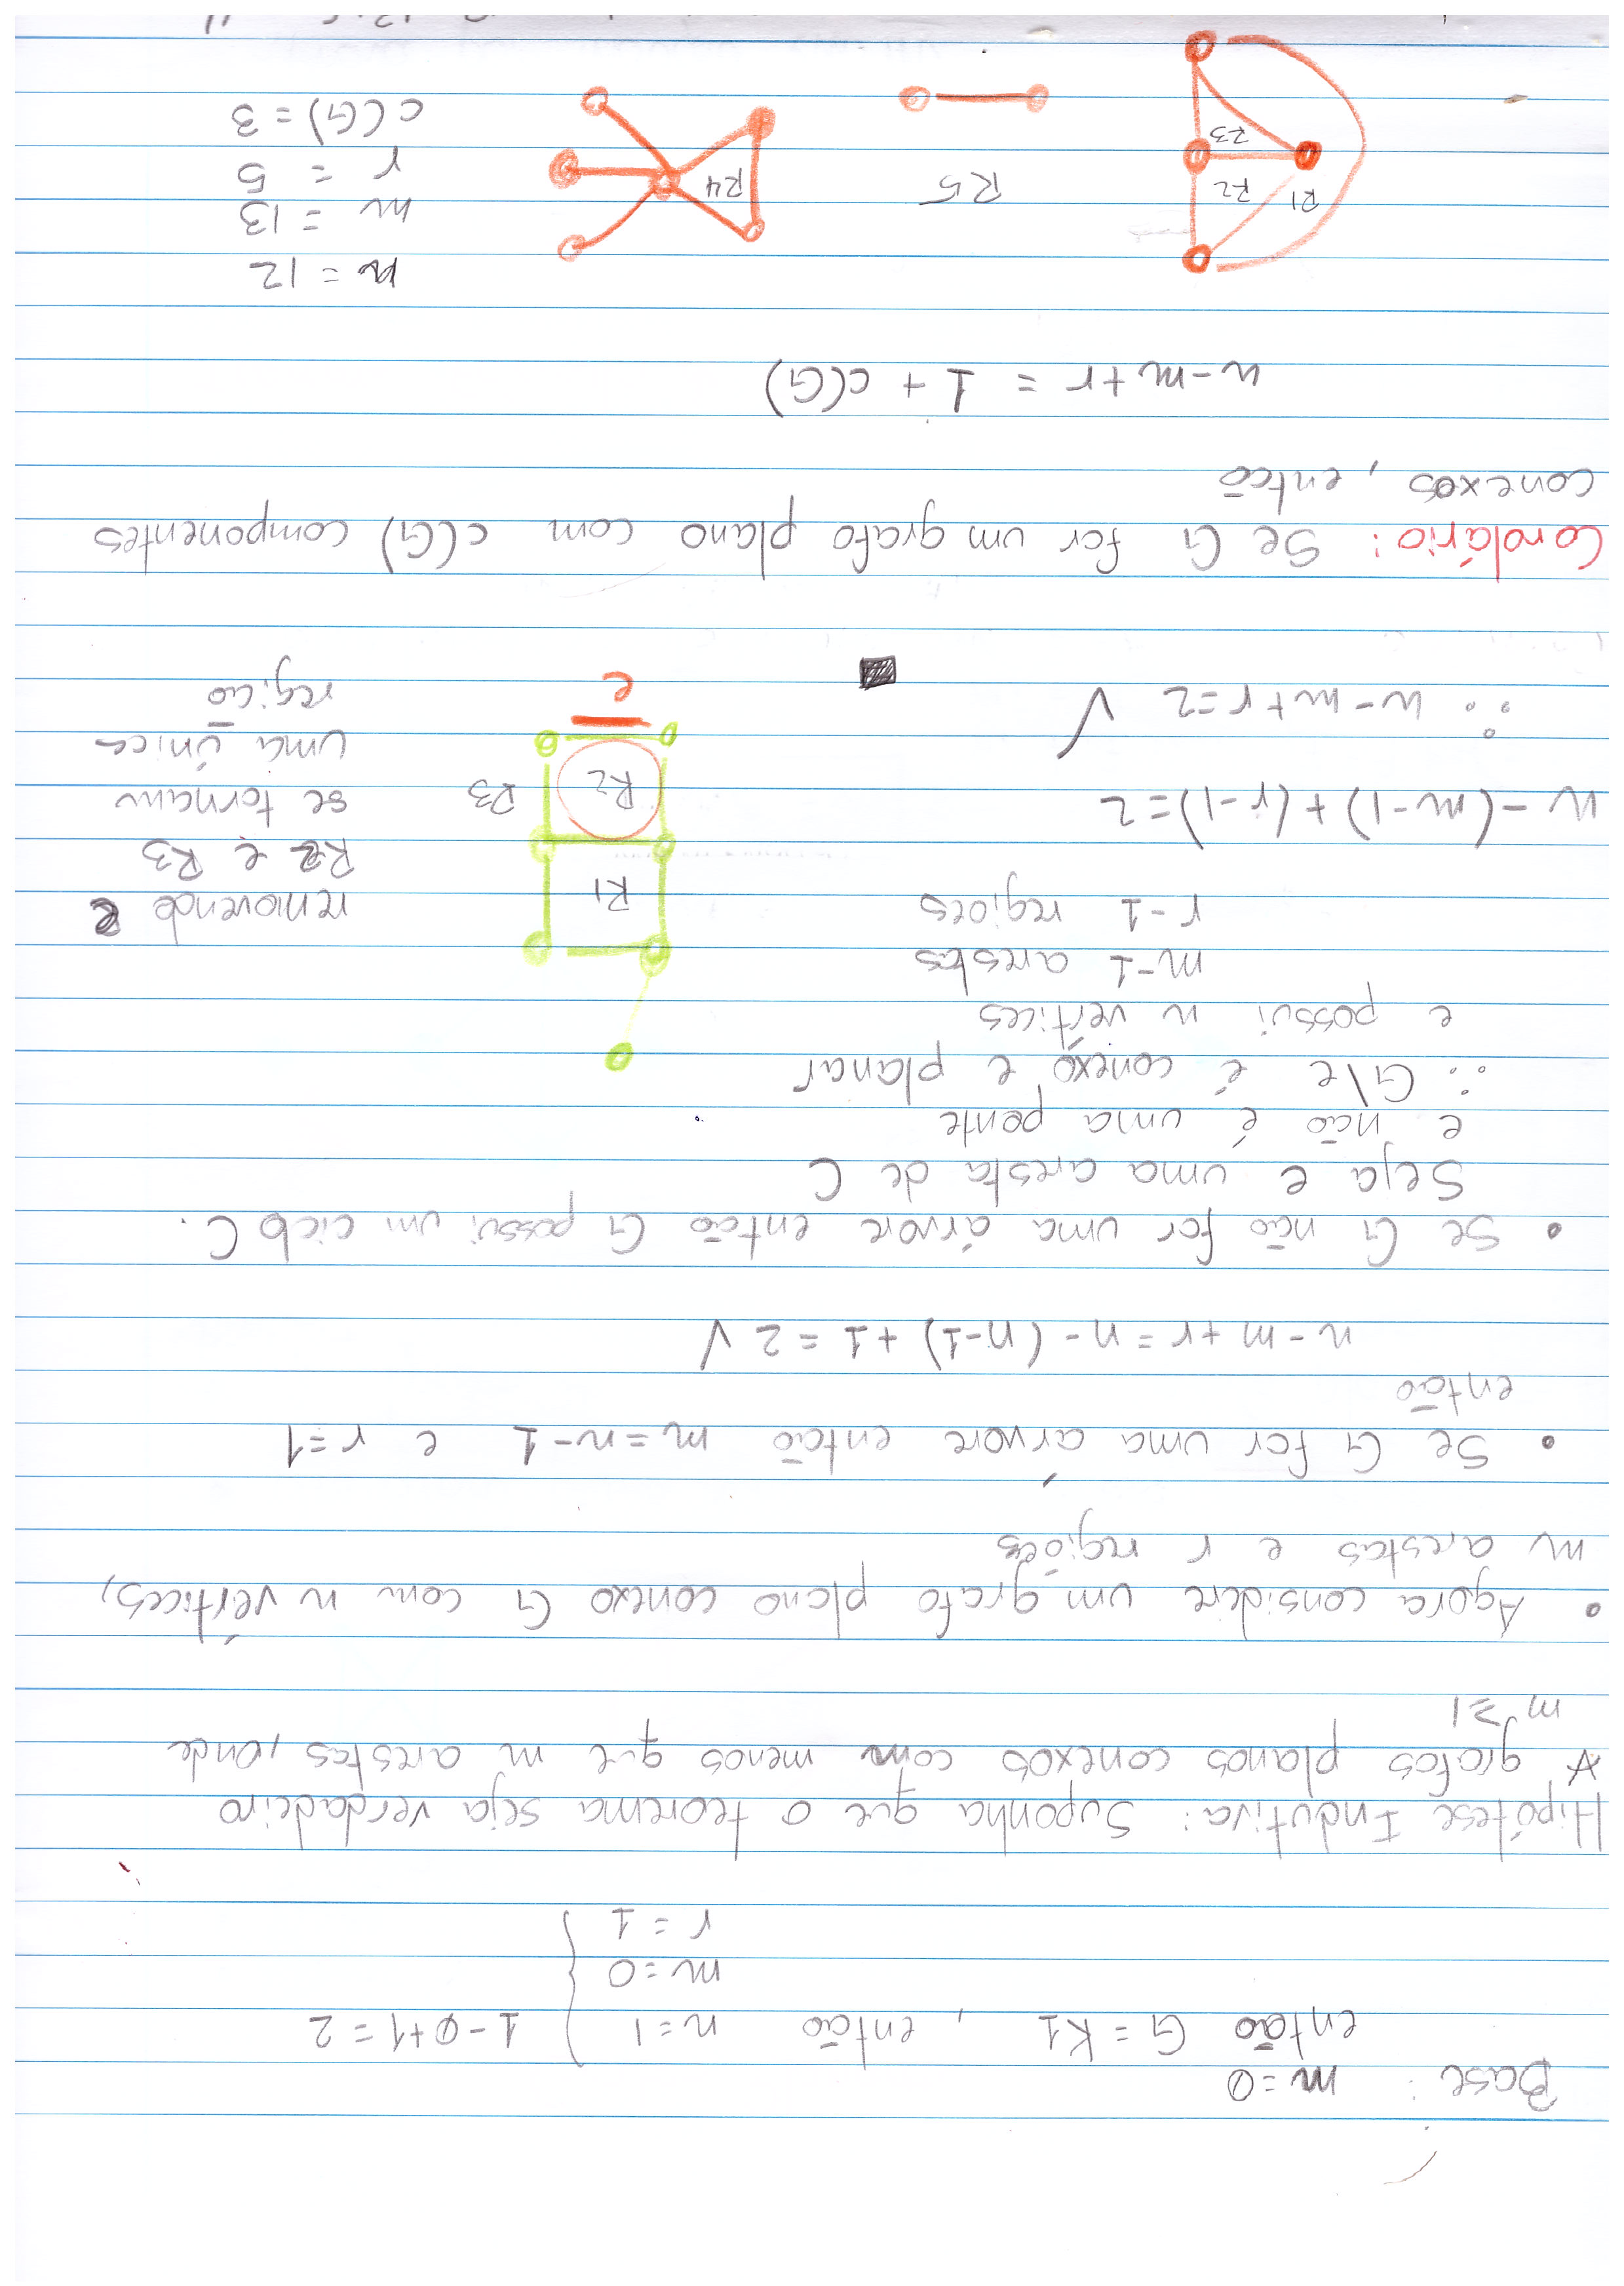 Base: m=0
então G = K1 , então n=1 1-0+1=2
m=0
r=1
Hipótese Indutiva: Suponha que o teorema seja verdadeiro
∀ grafos planos conexos com menos que m arestas, onde
m≥1
• Agora considere um grafo plano conexo G com n vértices,
m arestas e r regiões
• Se G for uma árvore então m=n-1 e r=1
então
n-m+r=n-(n-1)+1=2 ✓
• Se G não for uma árvore então G possui um ciclo C.
Seja e uma aresta de C
e não é uma ponte
∴ G\e é conexo e planar
e possui n vértices
m-1 arestas
r-1 regiões
n-(m-1)+(r-1)=2
∴ n-m+r=2 ✓
R1
R2 R3
e
removendo e
R2 e R3
se tornam
uma única
região
Corolário: Se G for um grafo plano com c(G) componentes
conexos, então
n-m+r = 1 + c(G)
R1 R2 R3 R5 R4
n = 12
m = 13
r = 5
c(G) = 3